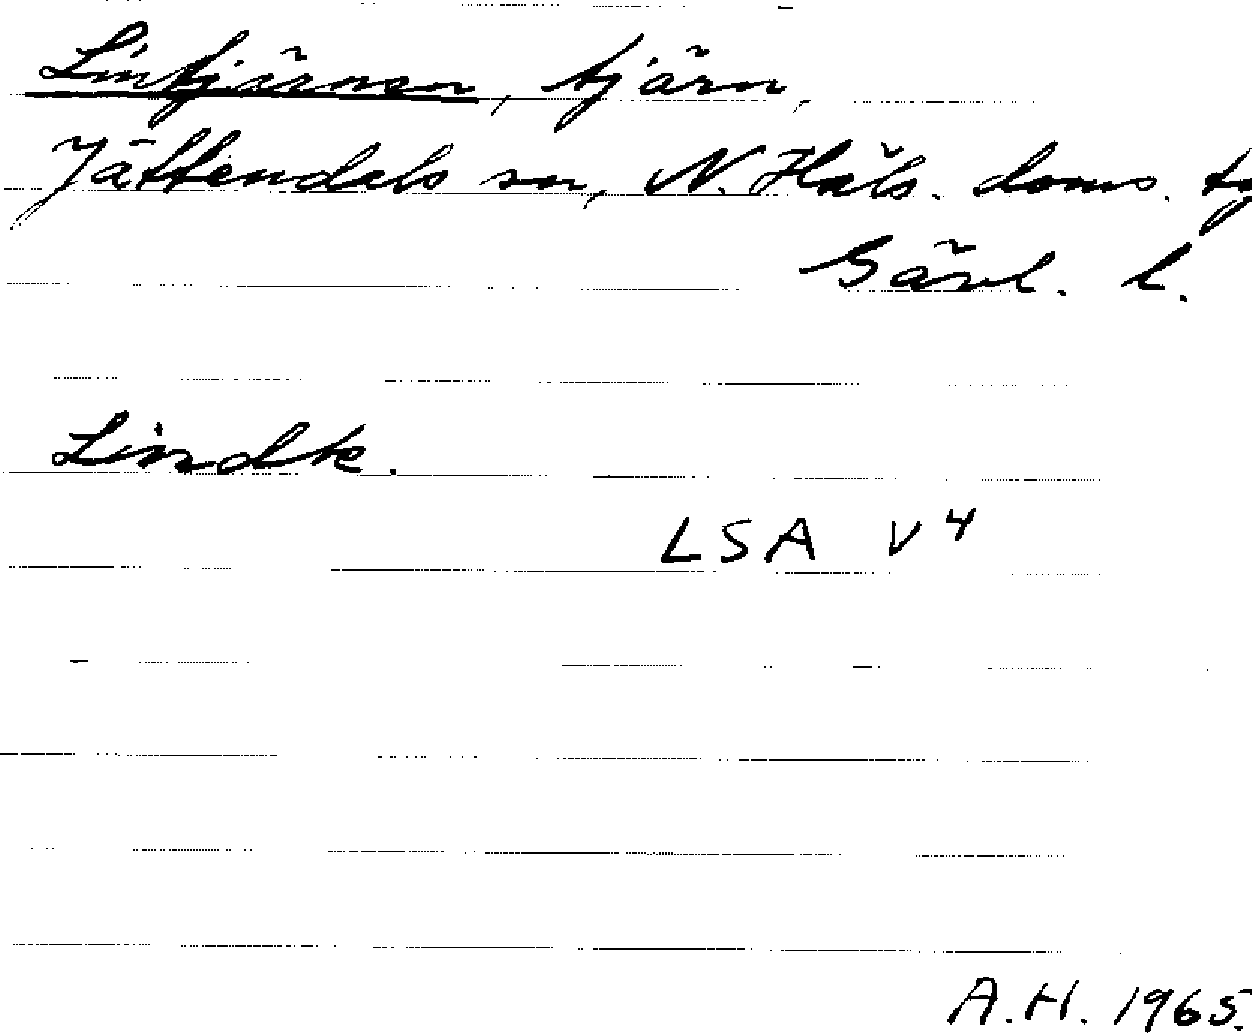 Lintjärnen, tjärn,
Jättendals sn, N. Häls. doms. tg
Gävl. l.
Lindtc.
LSA V4
A.H. 1965.